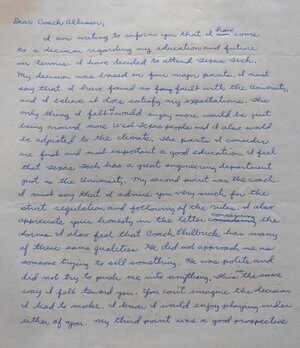 Dear Coach Allison,
I am writing to inform you that I have come
to a decision regarding my education and future
in tennis. I have decided to attend Texas Tech.
My decision was based on four major points. I must
say that I have found no fault with the University,
and I believe it does satisfy my expectations. The
only thing I felt I would enjoy more would be just
being around more West Texas people and I also would
be adjusted to the climate. The points I consider
are first and most important a good education. I feel
that Texas Tech has a great engineering department
just as the University. My second point was the coach.
I must say that I admire you very much for the
strict regulation and following of the rules. I also
appreciate your honesty in the letter concerning the
dorms. I also feel that Coach Philbrick has many
of these same qualities. He did not approach me as
someone trying to sell something. He was polite and
did not try to push me into anything, this the same
way I felt toward you. You can't imagine the decision
I had to make. I know I would enjoy playing under
either of you. My third point was a good prospective